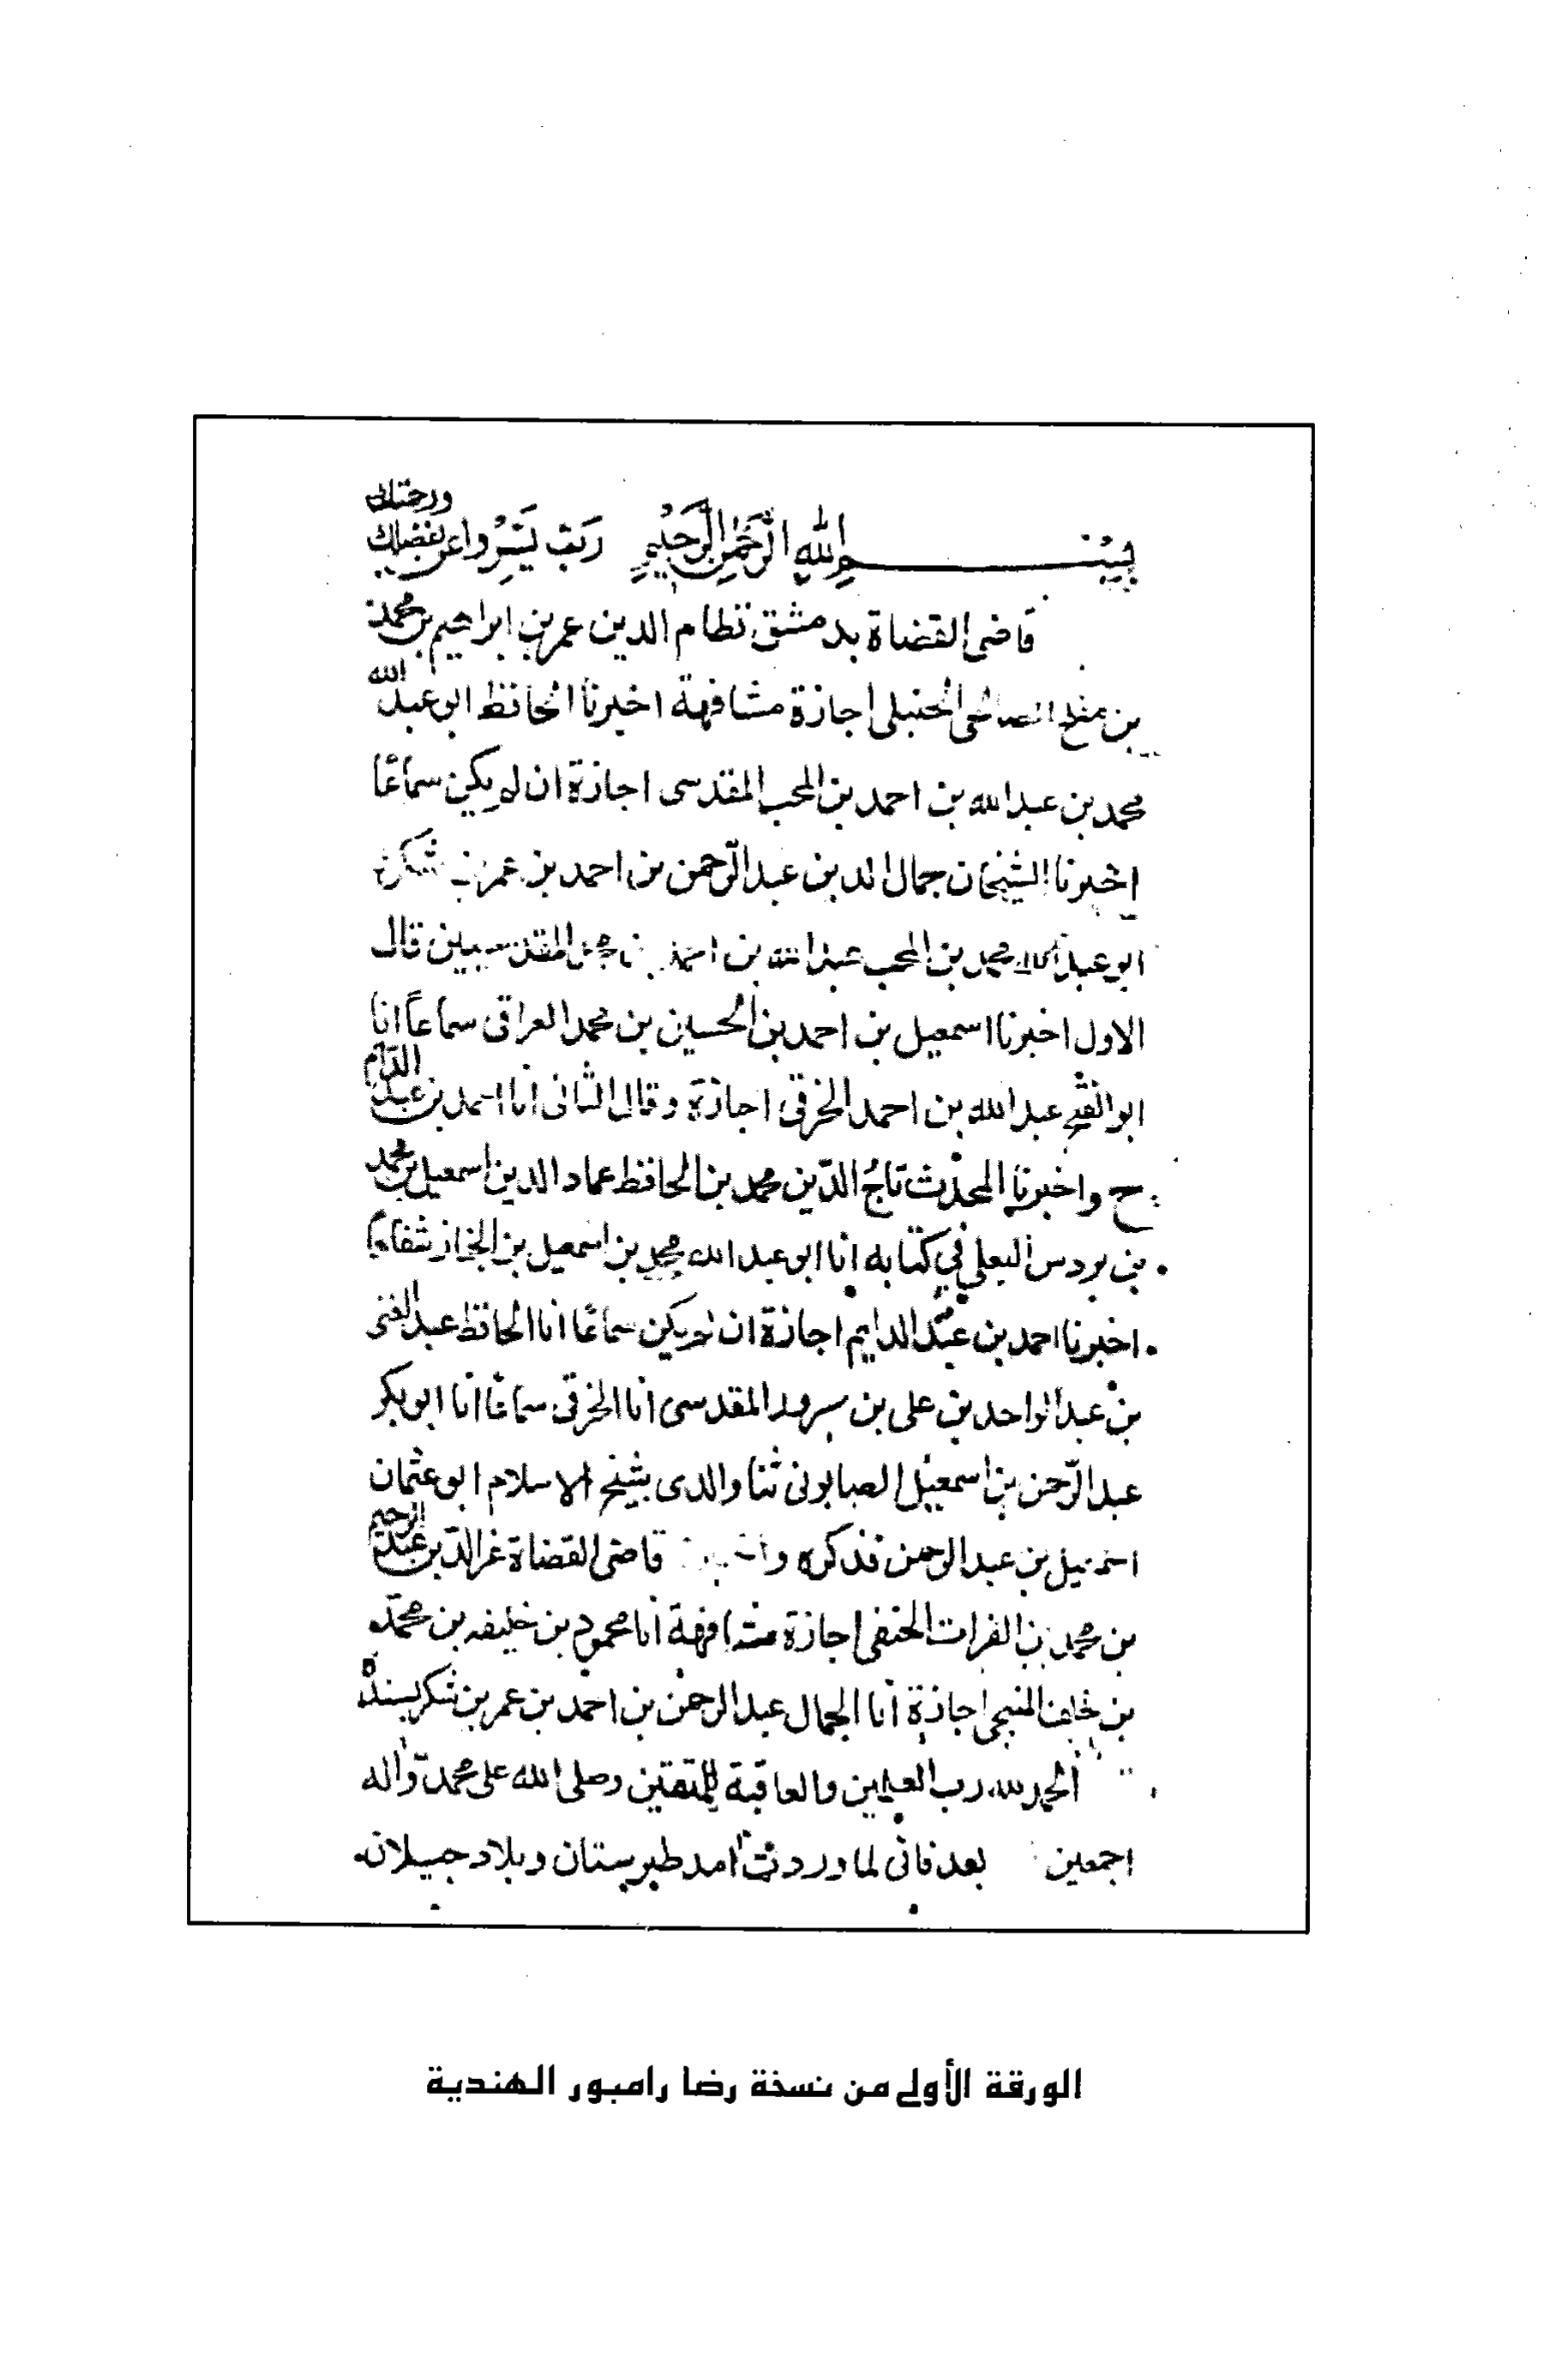 بِسْـــــمِ اللهِ الرَّحْمٰنِ الرَّحِيْمِ رَبِّ يَسِّرْ واعن بفضلك ورحمتك
قاضى القضاة بدمشق نظام الدين عمر بن ابراهيم بن محمد
بن مفلح الصالحى الحنبلى اجازة مشافهة اخبرنا الحافظ ابو عبد الله
محمد بن عبد الله بن احمد بن المحب المقدسى اجازة ان لم يكن سماعًا
اخبرنا الشيخان جمال الدين عبد الرّحمن بن احمد بن عمر بن شكر
ابو عبد الله محمد بن المحب عبد الله بن احمد بن محمد المقدسيين قال
الاول اخبرنا اسمعيل بن احمد بن الحسين بن محمد العراقى سماعاً انا
ابو الفتح عبد الله بن احمد الخرقى اجازة وقال الثانى انا احمد بن عبد الدّايم
ح واخبرنا المحدّث تاجُ الدّين محمد بن الحافظ عماد الدين اسمعيل بن محمد
بن بردس البعلى في كتابه انا ابو عبد الله محمد بن اسمعيل بن الخباز شفاها
اخبرنا احمد بن عبد الدايم اجازة ان لم يكن سماعًا انا الحافظ عبد الغنى
بن عبد الواحد بن على بن سرور المقدسى انا الخرقى سماعًا انا ابو بكر
عبد الرّحمن بن اسمعيل الصابونى ثنا والدى شيخ الاسلام ابو عثمان
اسمعيل بن عبد الرحمن فذكره قاضى القضاة عز الدّين عبد الرحيم
بن محمد بن الفرات الحنفى اجازة مشافهة انا محمود بن خليفه بن محمد
بن خلف المنبجى اجازة انا الجمال عبد الرحمن بن احمد بن عمر بن شكر بسنده
الحمد لله رب العلمين والعاقبة للمتقين وصلى الله على محمد وآله
اجمعين بعد فانى لما وردت آمد طبرستان وبلاد جيلان
الورقة الأولى من نسخة رضا رامبور الهندية